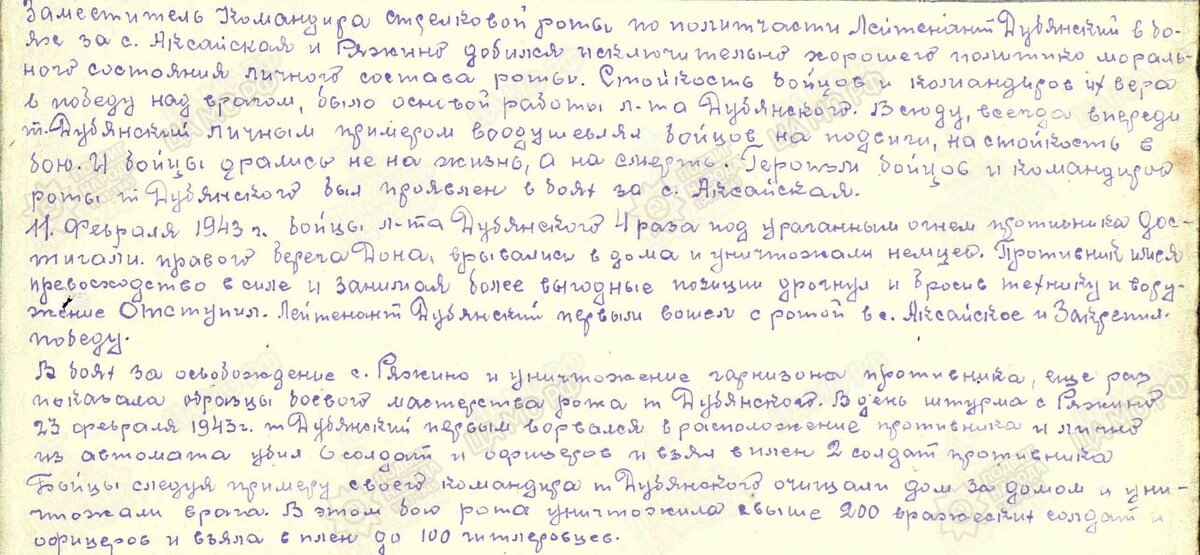 Заместитель Командира стрелковой роты по политчасти Лейтенант Дубянский в бо-
ях за с. Аксайская и Ряжино добился исключительно хорошего политико мораль-
ного состояния личного состава роты. Стойкость бойцов и командиров их вера
в победу над врагом, было основой работы л-та Дубянского. Всюду, всегда впереди
т. Дубянский личным примером воодушевлял бойцов на подвиги, на стойкость в
бою. И бойцы дрались не на жизнь, а на смерть. Героизм бойцов и командиров
роты т Дубянского был проявлен в боях за с. Аксайская.
11. Февраля 1943 г. бойцы л-та Дубянского 4 раза под ураганным огнем противника дос-
тигали правого берега Дона, врывались в дома и уничтожали немцев. Противник имея
превосходство в силе и занимая более выгодные позиции дрогнул и бросив технику и вору-
жение Отступил. Лейтенант Дубянский первым вошел с ротой в с. Аксайское и Закрепил
победу.
В боях за освобождение с. Ряжино и уничтожение гарнизона противника, еще раз
показала образцы боевого мастерства рота т Дубянского. В день штурма с Ряжино
23 февраля 1943 г. т Дубянский первым ворвался в расположение противника и лично
из автомата убил 6 солдат и офицеров и взял в плен 2 солдат противника
Бойцы следуя примеру своего командира т Дубянского очищали дом за домом и уни-
чтожали врага. В этом бою рота уничтожила свыше 200 вражеских солдат и
офицеров и взяла в плен до 100 гитлеровцев.